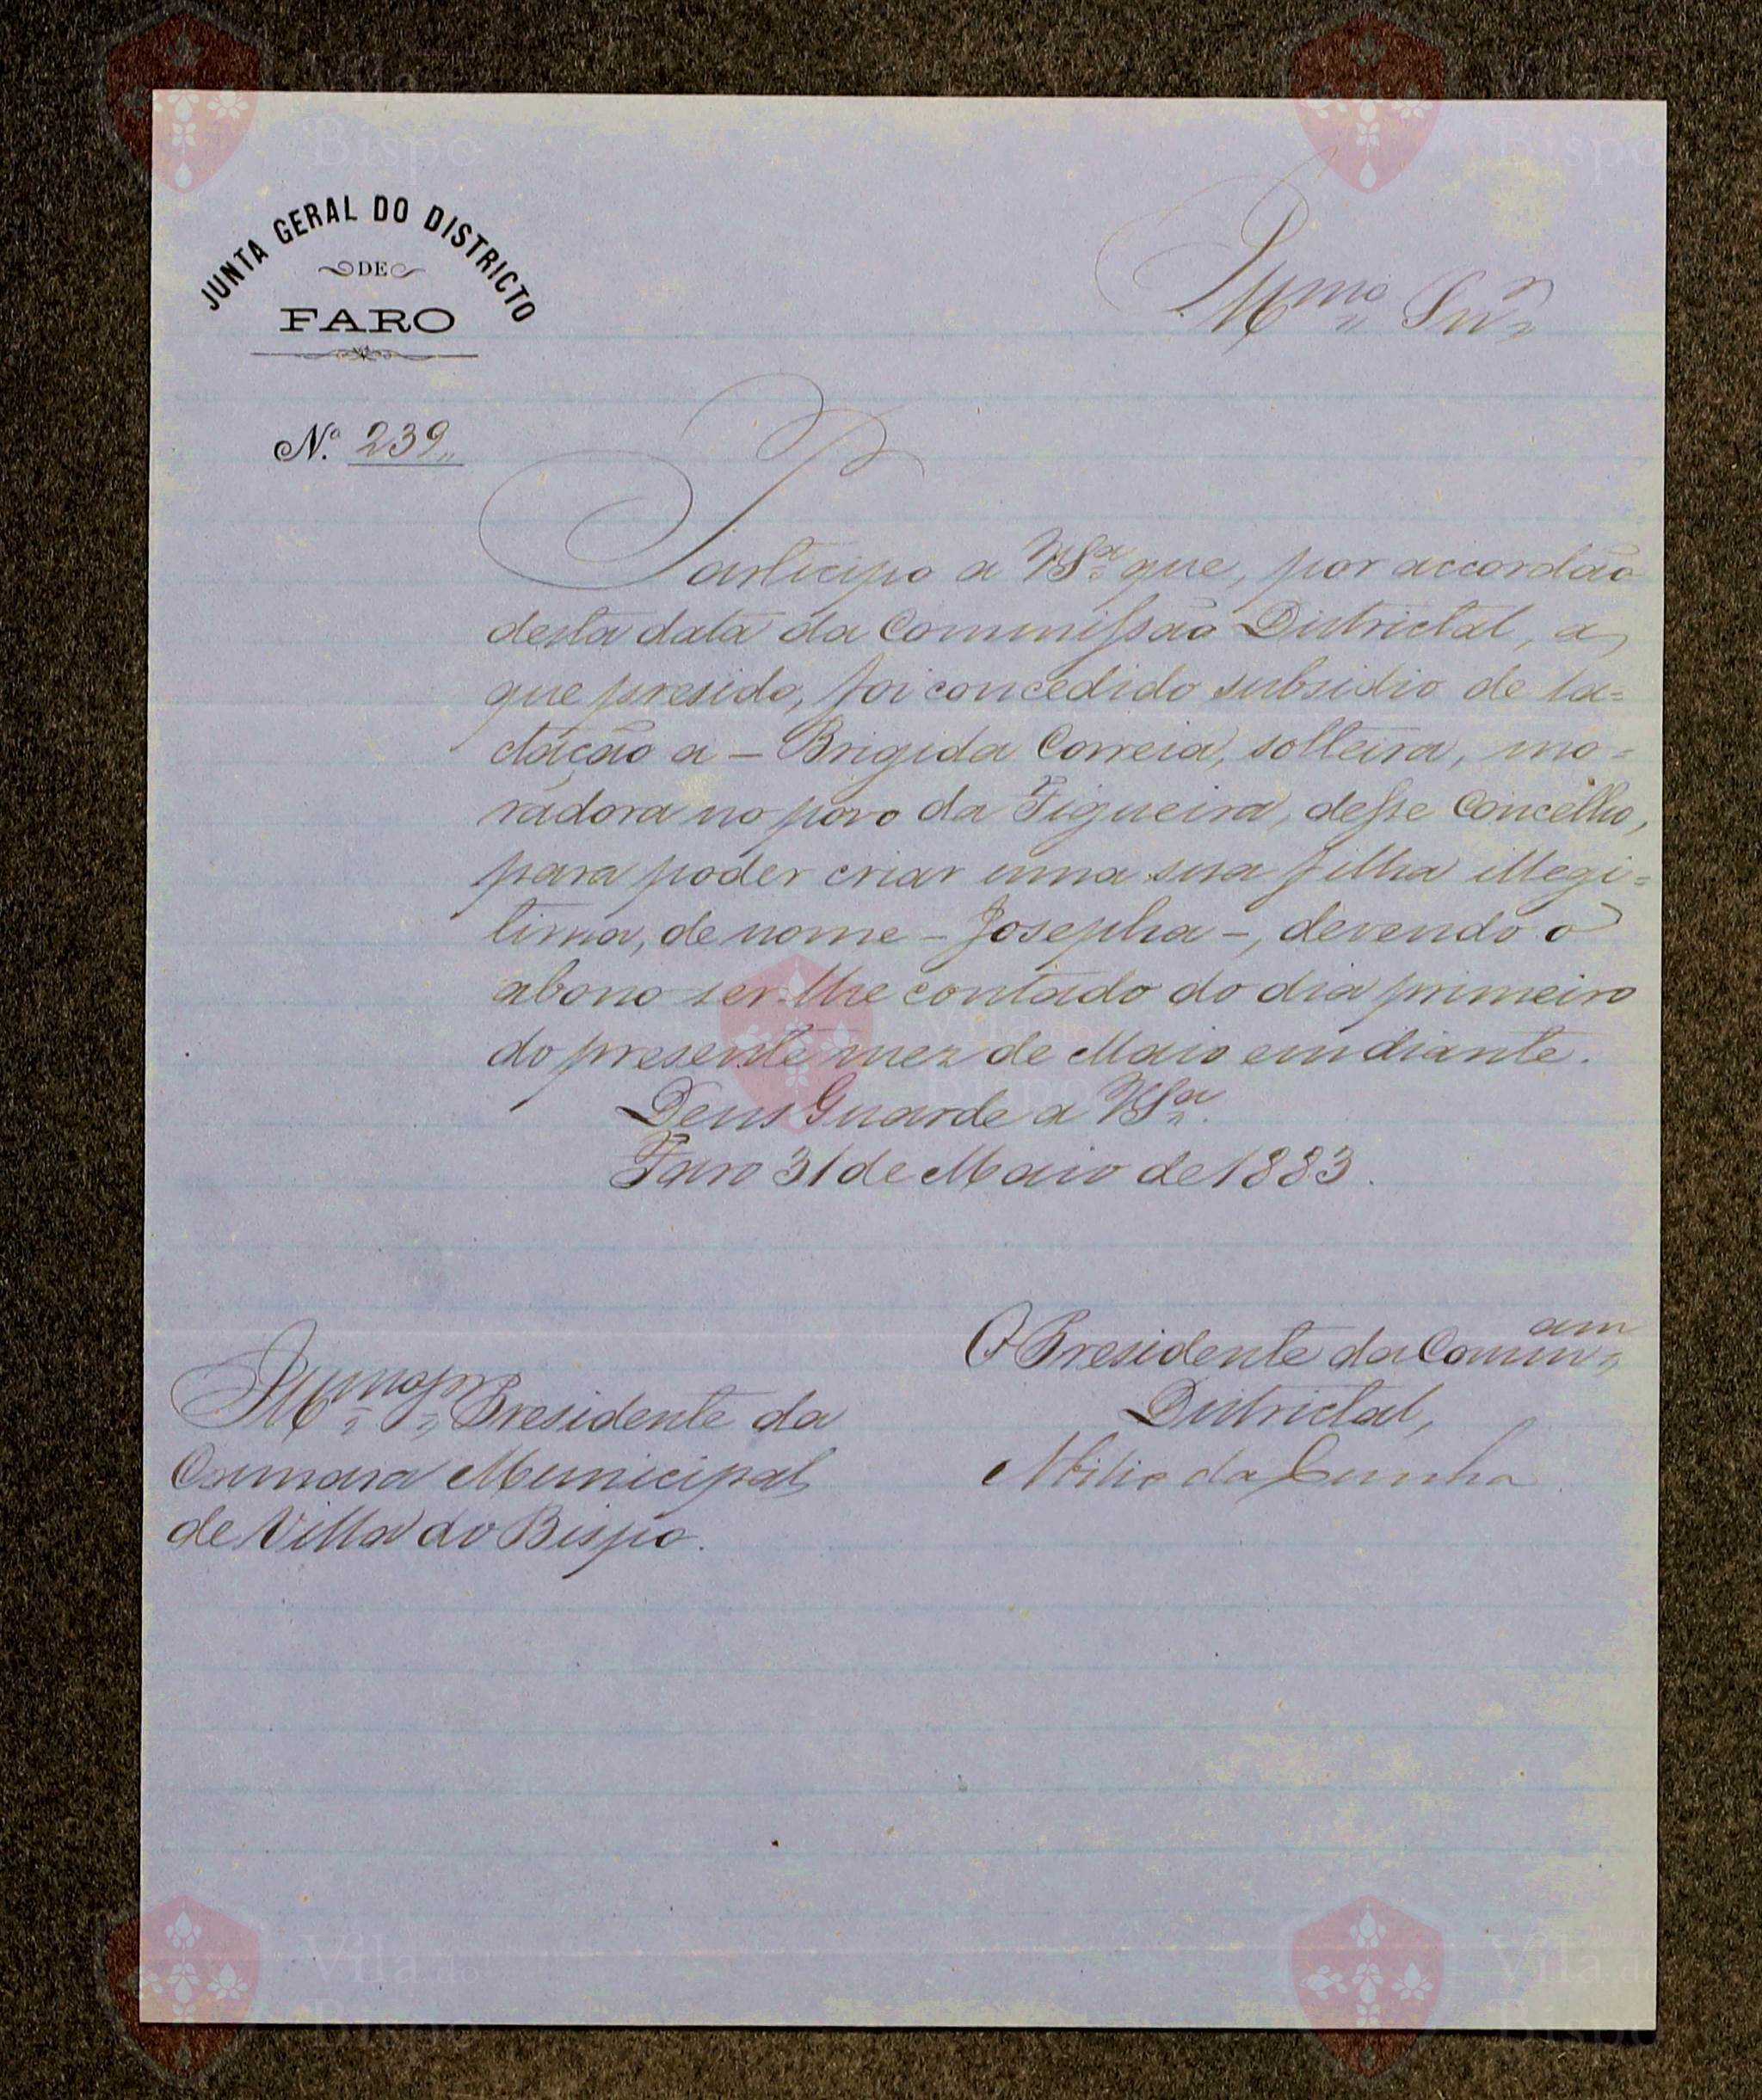 JUNTA GERAL DO DISTRICTO
DE
FARO
Illmo Snr
N.º 239
Participo a VSª que, por accordão
desta data da Commissão Districtal, a
que presido, foi concedido subsidio de la-
ctação a – Brigida Correia, solteira, mo-
radora no povo da Figueira, desse Concelho,
para poder criar uma sua filha illegi-
tima, de nome – Josepha –, devendo o
abono ser-lhe contado do dia primeiro
do presente mez de Maio em diante.
Deus Guarde a VSª.
Faro 31 de Maio de 1883.
O Presidente da Commam
Districtal,
da Cunha
Illmo Snr Presidente da
Camara Municipal
de Villa do Bispo.
Vila do
Bispo